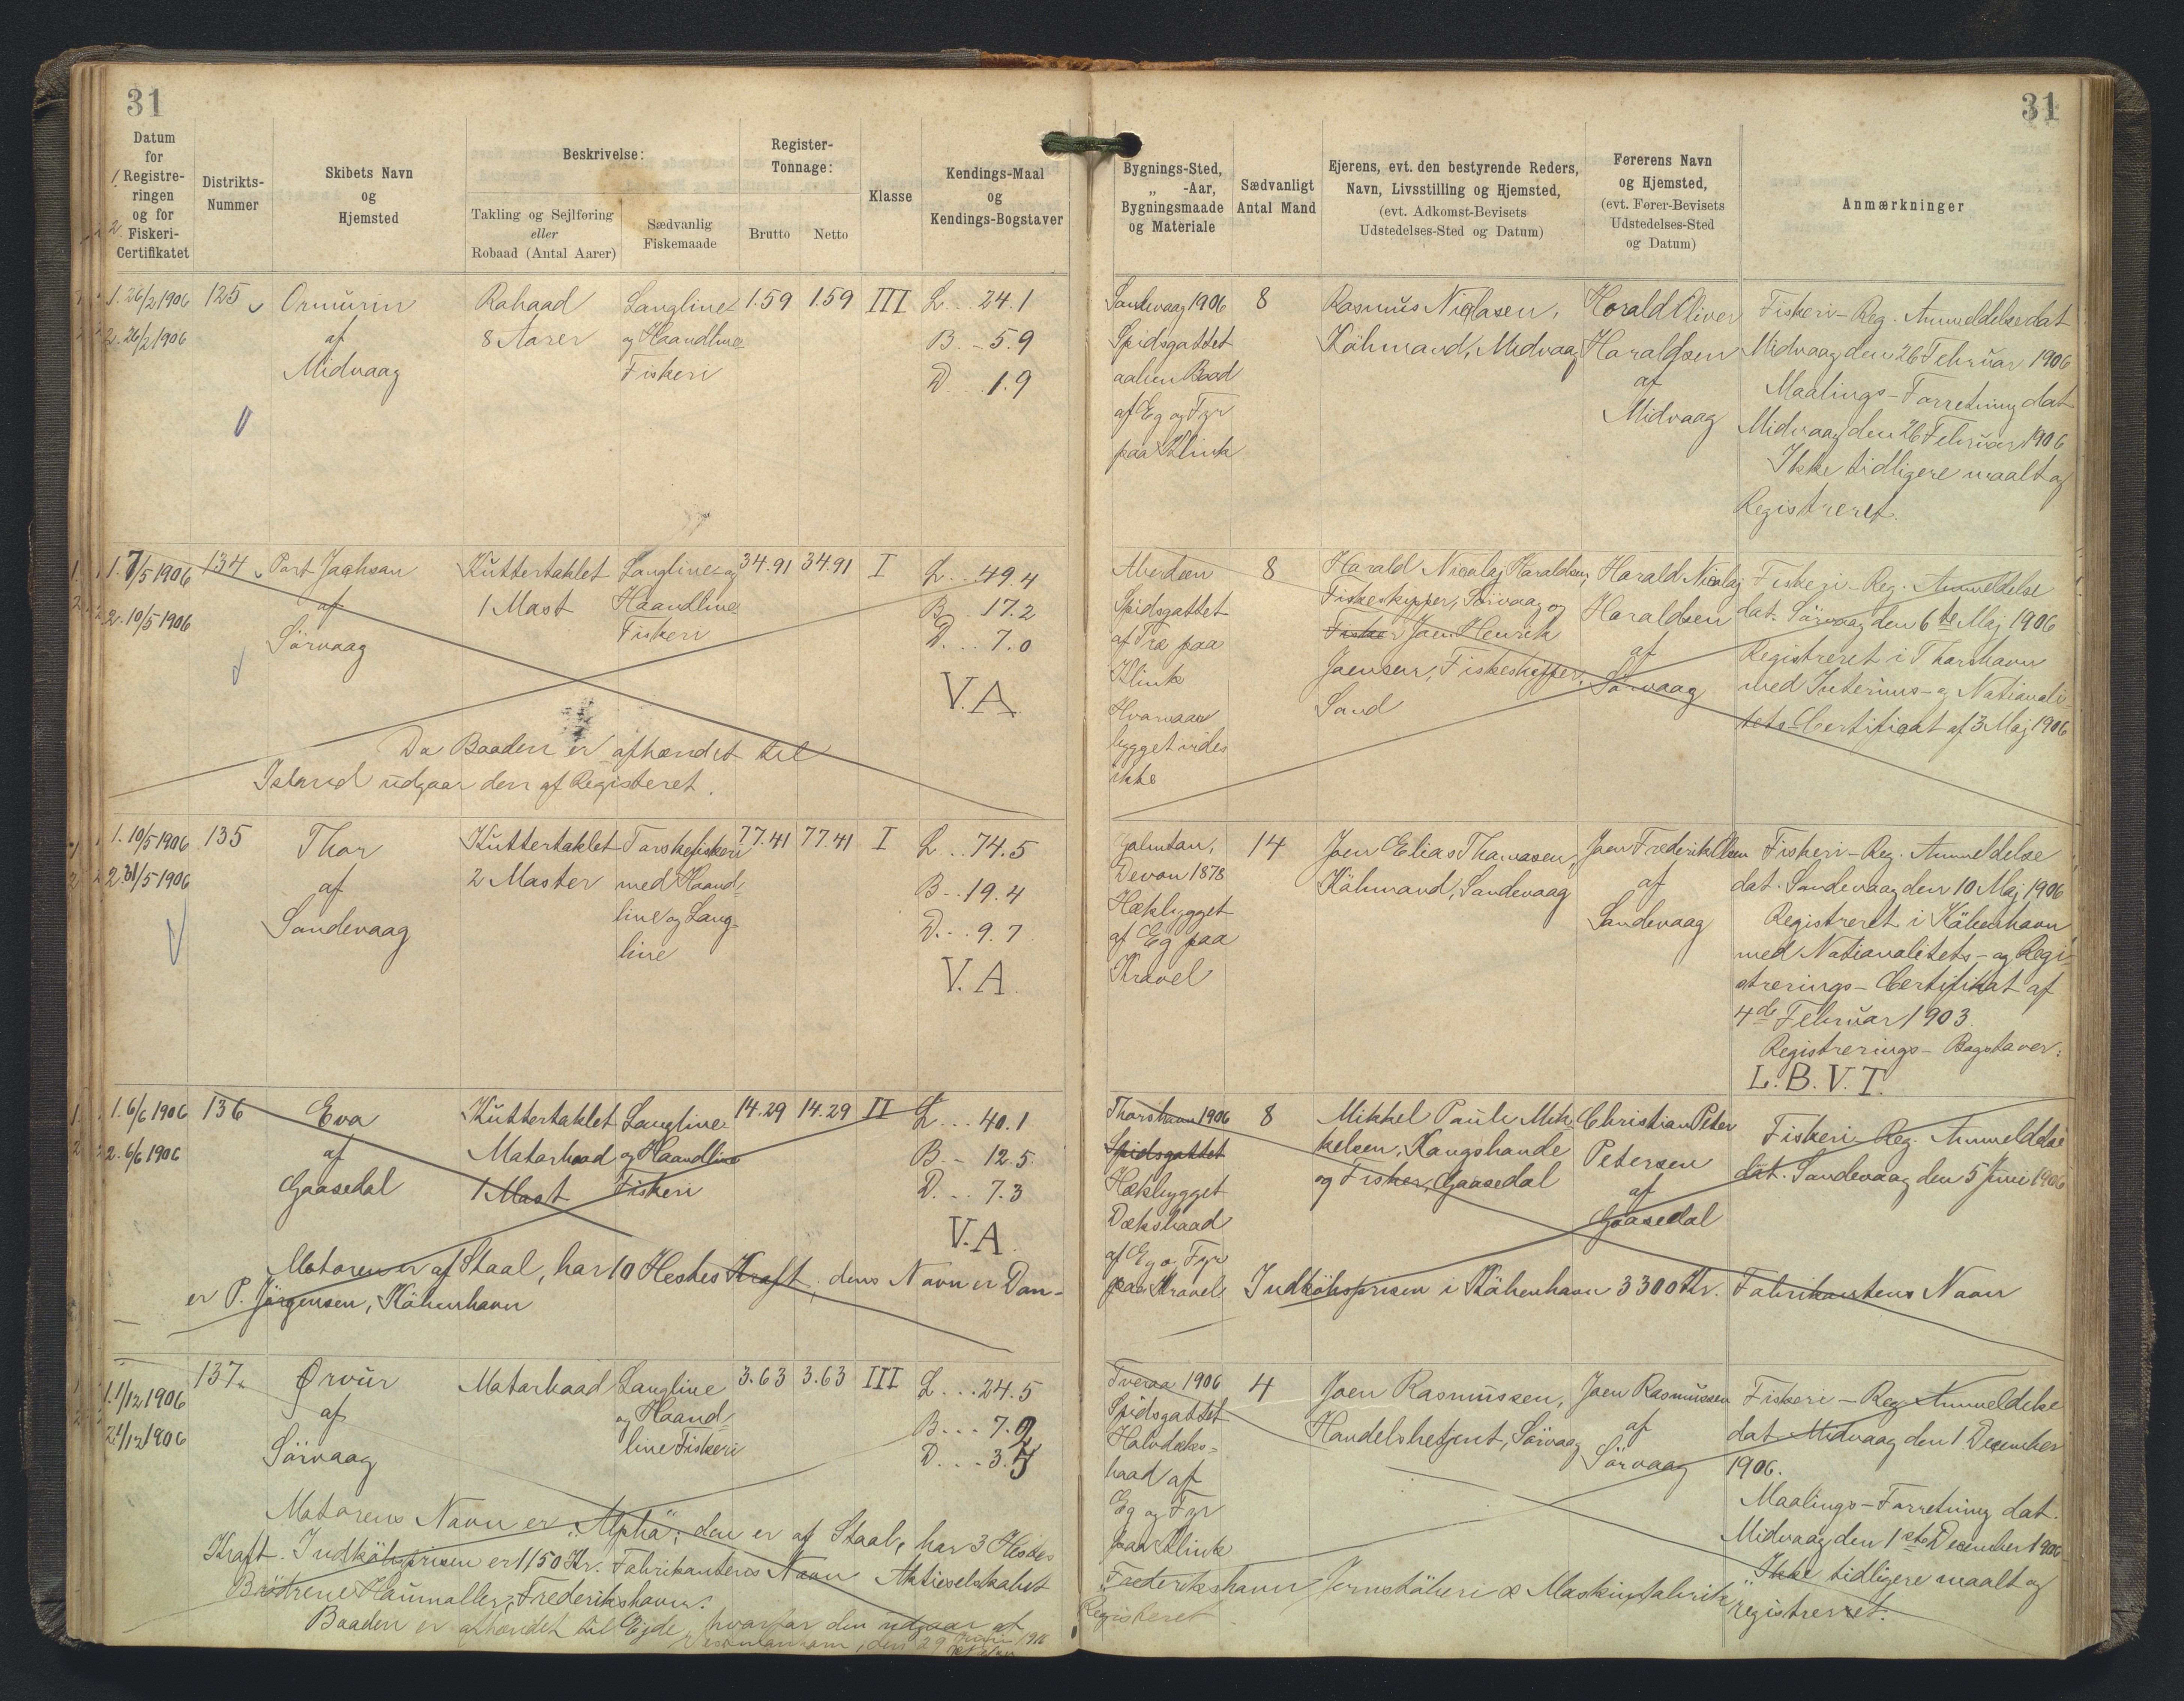 31
31
Datum
for
Registre-
ringen
og for
Fiskeri-
Certifikatet
Distrikts-
Nummer
Skibets Navn
og
Hjemsted
Beskrivelse:
Takling og Sejlføring
eller
Robaad (Antal Aarer)
Sædvanlig
Fiskemaade
Register-
Tonnage:
Brutto
Netto
Klasse
Kendings-Maal
og
Kendings-Bogstaver
Bygnings-Sted,
„ -Aar,
Bygningsmaade
og Materiale
Sædvanligt
Antal Mand
Ejerens, evt. den bestyrende Reders,
Navn, Livsstilling og Hjemsted,
(evt. Adkomst-Bevisets
Udstedelses-Sted og Datum)
Førerens Navn
og Hjemsted,
(evt. Fører-Bevisets
Udstedelses-Sted
og Datum)
Anmærkninger
1. 26/2 1906
2. 26/2 1906
125
Ormurin
af
Midvaag
Robaad
8 Aarer
Langline
og Haandline
Fiskeri
1.59
1.59
III
L... 24.1
B. - 5.9
D... 1.9
Sandevaag 1906
Spidsgattet
aaben Baad
af Eg og Fyr
paa Klink
8
Rasmus Niclasen,
Köbmand, Midvaag
Horald Oliver
Haraldsen
af
Midvaag
Fiskeri-Reg. Anmeldelse dat
Midvaag den 26 Februar 1906
Maalings-Forretning dat
Midvaag den 26 Februar 1906
Ikke tidligere maalt og
Registreret.
1. 7/5 1906
2. 10/5 1906
134
Port Jackson
af
Sörvaag
Kuttertaklet
1 Mast
Langline- og
Haandline
Fiskeri
34.91
34.91
I
L... 49.4
B. . 17.2
D. ... 7.0
V.A
Da Baaden er afhændet til
Island udgaar den af Registeret.
Aberdeen
Spidsgattet
af Træ paa
Klink
Hvornaar
bygget vides
ikke
8
Harald Nicolaj Haraldsen,
Fiskeskipper, Sörvaag og
Fisker Joen Henrik
Joensen, Fiskeskipper,
Sand
Harald Nicolaj
Haraldsen
af
Sörvaag
Fiskeri-Reg. Anmeldelse
dat. Sörvaag den 6te Maj 1906
Registreret i Thorshavn
med Interims- og Nationali-
tets-Certifikat af 3 Maj 1906
1. 10/5 1906
2. 31/5 1906
135
Thor
af
Sandevaag
Kuttertaklet
2 Master
Torskefiskeri
med Haand-
line og Lang-
line
77.41
77.41
I
L... 74.5
B... 19.4
D... 9.7
V.A.
Devon 1878
Hækbygget
af Eg paa
Kravel
14
Joen Elias Thomasen,
Köbmand, Sandevaag
Joen Frederik Olsen
af
Sandevaag
Fiskeri-Reg. Anmeldelse
dat. Sandevaag den 10 Maj 1906
Registreret i Köbenhavn
med Nationalitets- og Regi-
strerings-Certifikat af
4de Februar 1903.
Registrerings-Bogstaver:
L.B.V.T.
1. 6/6 1906
2. 6/6 1906
136
Eva
af
Gaasedal
Kuttertaklet
Motorbaad
1 Mast
Langline
og Haandline
Fiskeri
14.29
14.29
II
L... 40.1
B. - 12.5
D. ... 7.3
V.A.
Motoren er af Staal, har 10 Hestes Kraft, dens Navn er Dan-
er P. Jörgensen, Köbenhavn
Thorshavn 1906
Spidsgattet
Hækbygget
Dæksbaad
af Eg og Fyr
paa Kravel
8
Mikkel Pauli Mik-
kelsen, Kongsbonde
og Fisker, Gaasedal
Christian Peter
Petersen
af
Gaasedal
Fiskeri-Reg. Anmeldelse
dat. Sandevaag den 5 Juni 1906
Indköbsprisen i Köbenhavn 3300 Kr. Fabrikantens Navn
1. 1/12 1906
2. 1/12 1906
137
Ørvur
af
Sörvaag
Motorbaad
Langline
og Haand-
line Fiskeri
3.63
3.63
III
L... 24.5
B. ... 7.2
D. ... 3.5
Motorens Navn er „Alpha"; den er af Staal, har 3 Hestes
Kraft. Indköbsprisen er 1150 Kr. Fabrikantens Navn Aktieselskabet
Brödrene Houmöller, Frederikshavn.
Baaden er afhændet til Ejde, hvorfor den udgaar af
Tveraa 1906
Spidsgattet
Halvdæks-
baad af
Eg og Fyr
paa Klink
4
Joen Rasmussen,
Handelsbetjent, Sörvaag
Joen Rasmussen
af
Sörvaag
Fiskeri-Reg. Anmeldelse
dat. Midvaag den 1 December
1906.
Maalings-Forretning dat.
Midvaag den 1ste December 1906
Ikke tidligere maalt og
registreret.
Frederikshavn Jernstöberi & Maskinfabrik
Registeret